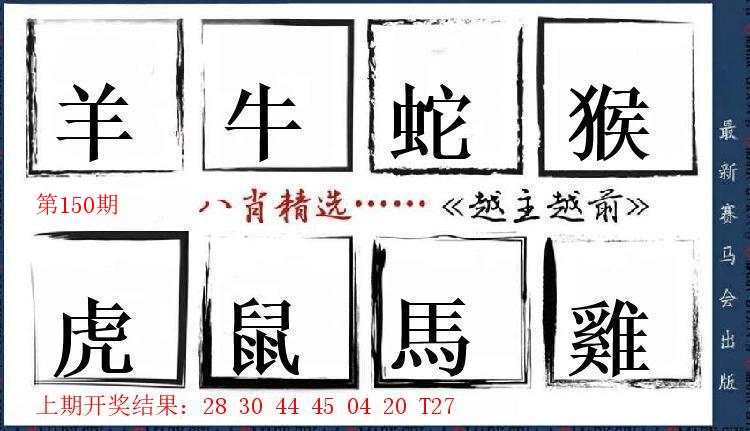 羊 牛 蛇 猴
第150期 八肖精选……《越主越前》
虎 鼠 馬 雞
上期开奖结果：28 30 44 45 04 20 T27
最新赛马会出版